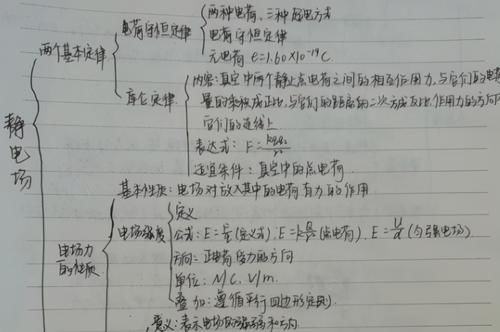 静电场
两个基本定律
电荷守恒定律
两种电荷、三种起电方式
电荷守恒定律
元电荷 e=1.60×10⁻¹⁹C.
库仑定律
内容:真空中两个静止点电荷之间的相互作用力,与它们的电荷
量的乘积成正比,与它们的距离的二次方成反比,作用力的方向在
它们的连线上
表达式:F=
适宜条件:真空中的点电荷.
电场力的性质
基本性质:电场对放入其中的电荷有力的作用
电场强度
定义
公式:E=F/q(定义式).E=kQ/r²(点电荷).E=U/d(匀强电场)
方向:正电荷受力的方向
单位:N/C.V/m.
叠加:遵循平行四边形定则.
意义:表示电场的强弱和方向